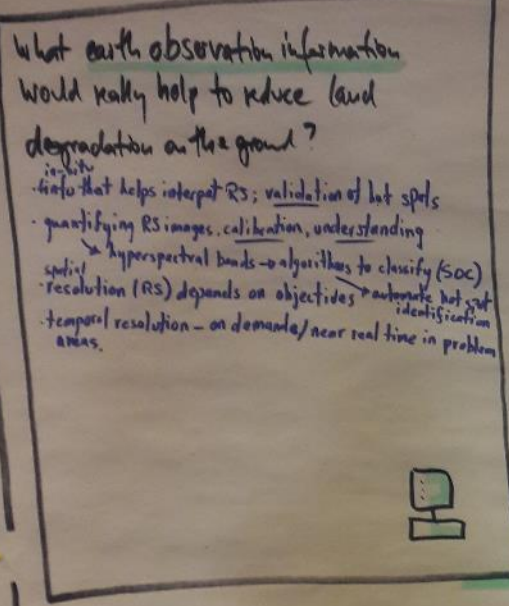 What earth observation information
would really help to reduce land
degradation on the ground?
in-situ
· info that helps interpret RS; validation of hot spots
· quantifying RS images, calibration, understanding
↘ hyperspectral bands → algorithms to classify (SOC)
spatial
· resolution (RS) depends on objectides ↘ automate hot spot
identification
· temporal resolution - on demande/near real time in problem
areas.